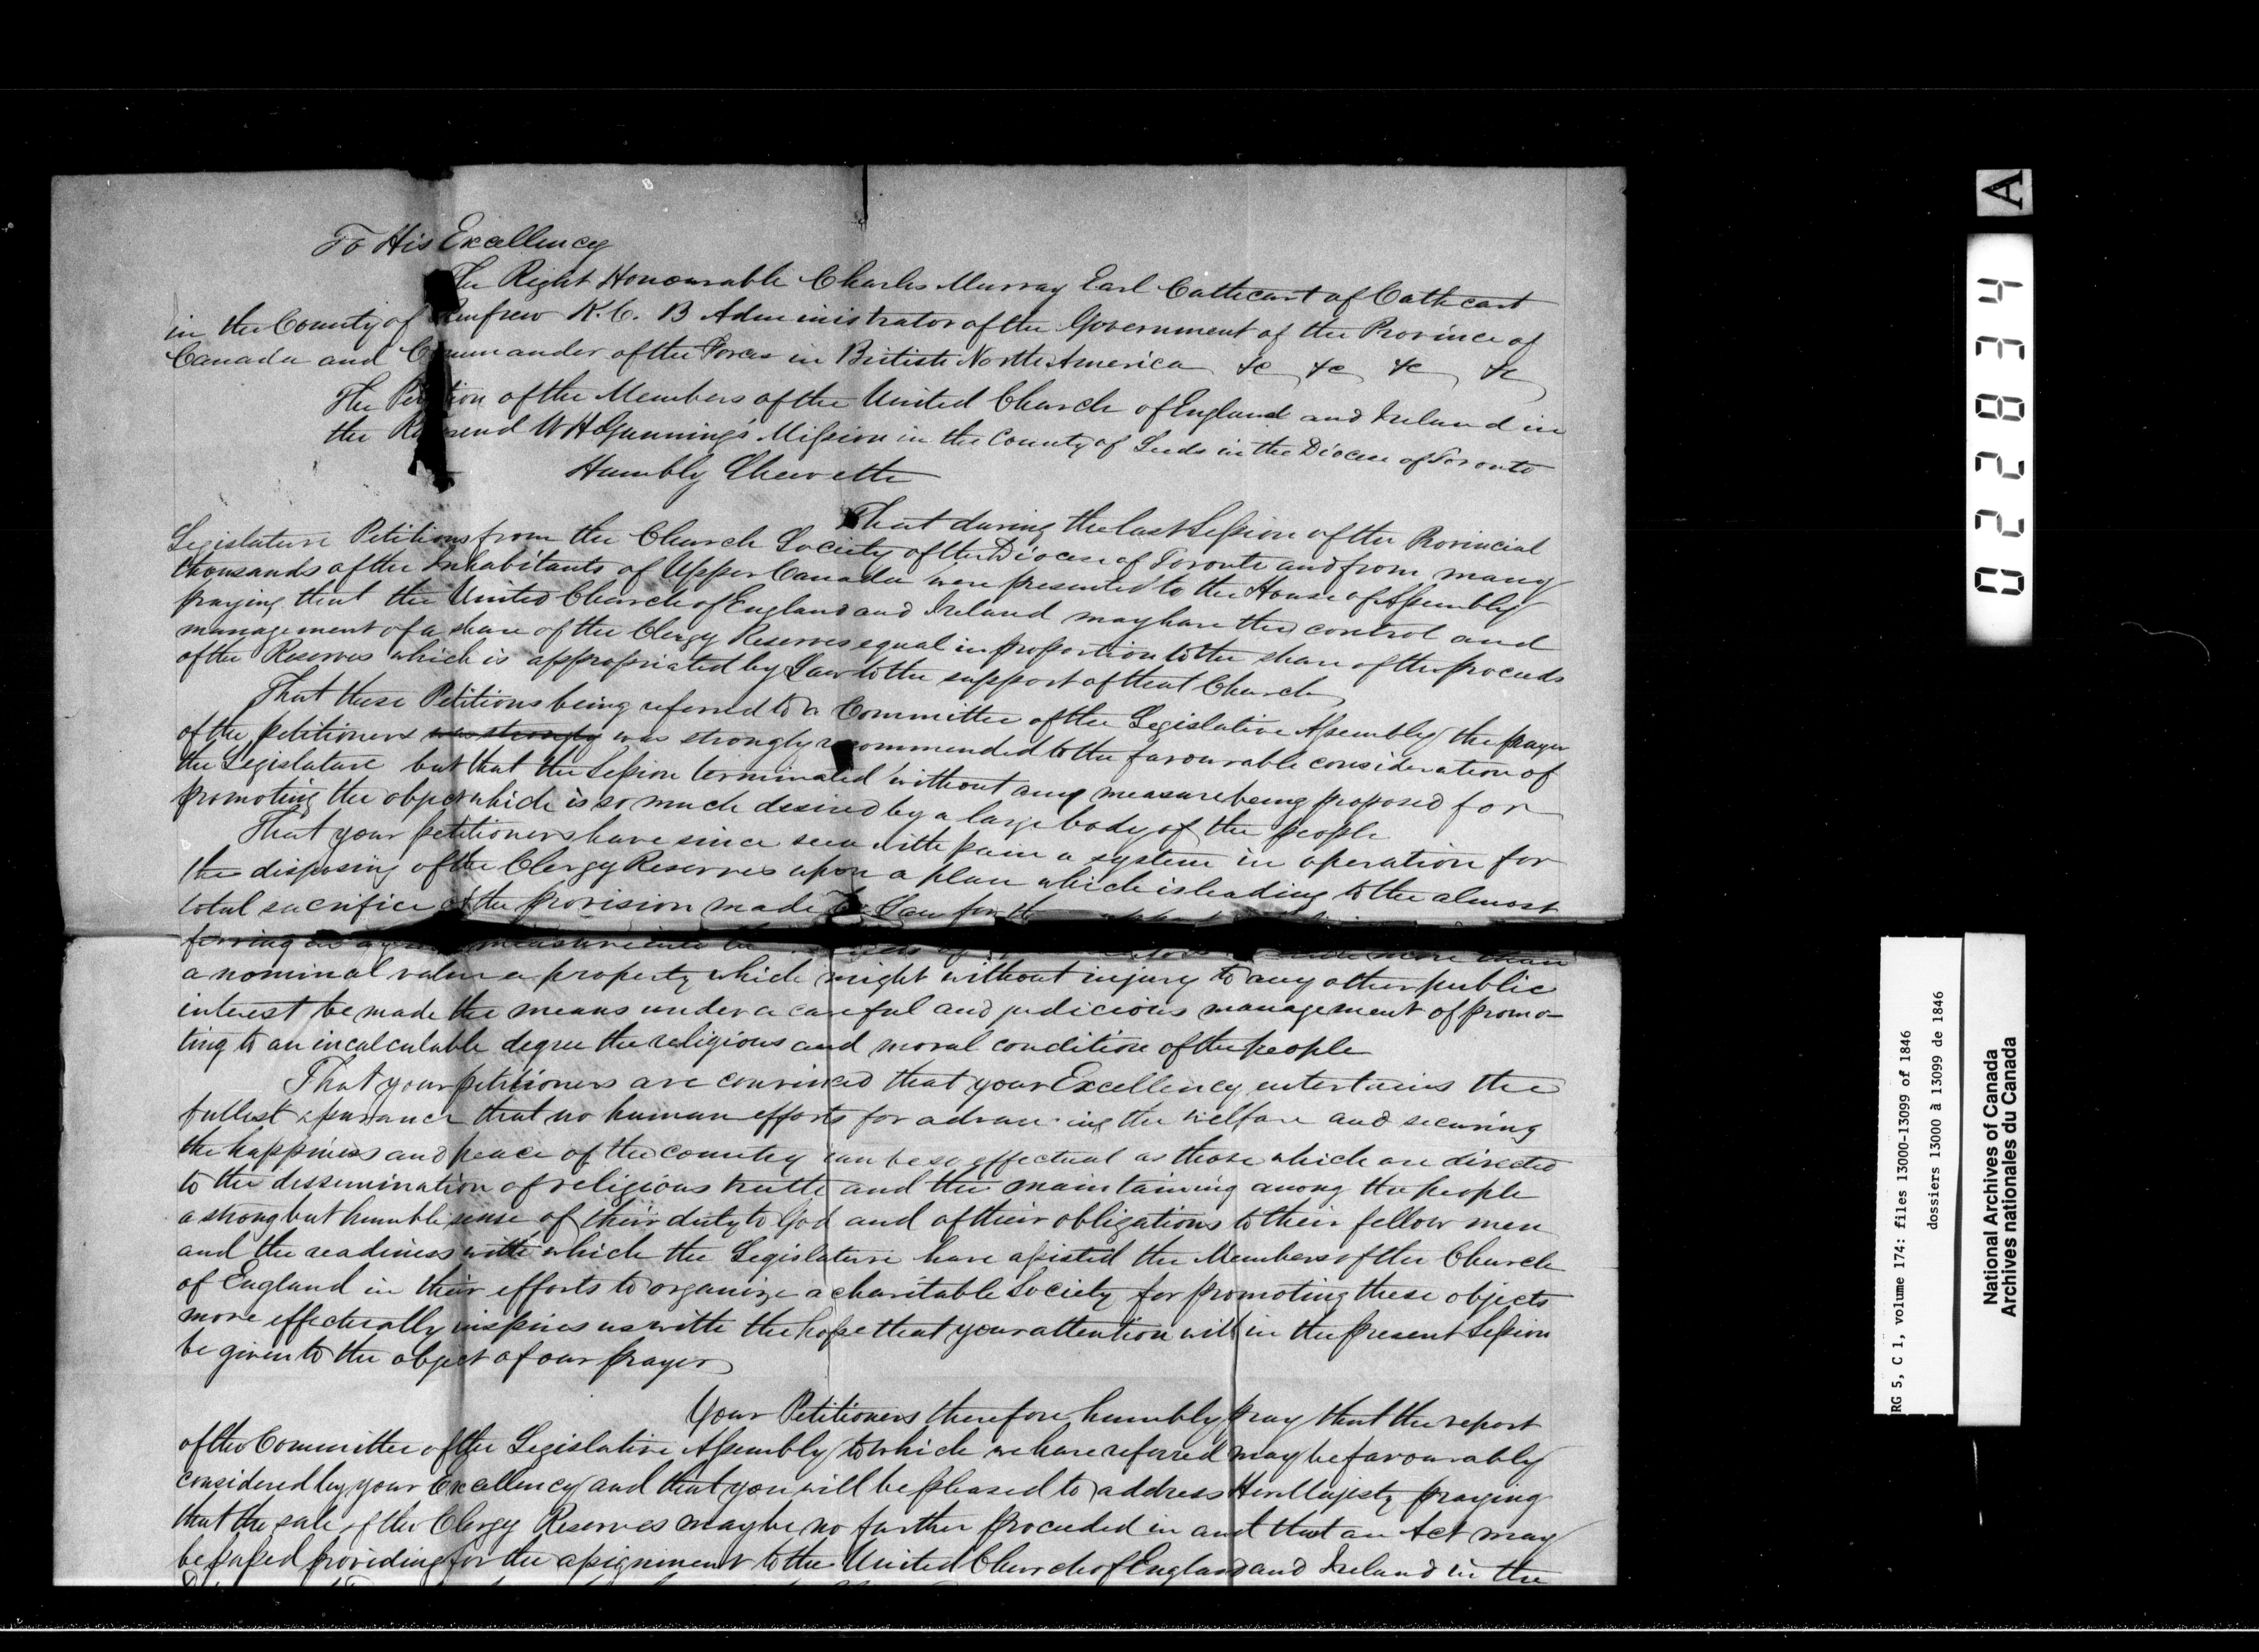 To His Excellency
The Right Honourable Charles Murray Earl Cathcart of Cathcart
in the County of Renfrew K.C. B Administrator of the Government of the Province of
Canada and Commander of the Forces in British North America &c &c &c &c
The Petition of the Members of the United Church of England and Ireland in
the Reverend W H Gunning's Mission in the County of Leeds in the Diocese of Toronto
Humbly Sheweth
That during the last Session of the Provincial
Legislature Petitions from the Church Society of the Diocese of Toronto and from many
thousands of the Inhabitants of Upper Canada were presented to the House of Assembly
praying that the United Church of England and Ireland may have the control and
management of a share of the Clergy Reserves equal in proportion to the share of the proceeds
of the Reserves which is appropriated by Law to the support of that Church
That these Petitions being referred to a Committee of the Legislative Assembly the prayer
of the petitioners was strongly was strongly recommended to the favourable consideration of
the Legislature but that the Session terminated without any measure being proposed for
promoting the object which is so much desired by a large body of the people
That your petitioners have since seen with pain a system in operation for
the disposing of the Clergy Reserves upon a plan which is leading to the almost
total sacrifice of the provision made by Law for
measure into the more than
a nominal value a property which might without injury to any other public
interest be made the means under a careful and judicious management of promo-
ting to an incalculable degree the religious and moral condition of the people
That your petitioners are convinced that your Excellency entertains the
fullest assurance that no human efforts for advancing the welfare and securing
the happiness and peace of the country can be so effectual as those which are directed
to the dissemination of religious truth and the maintaining among the people
a strong but humble sense of their duty to God and of their obligations to their fellow men
and the readiness with which the Legislature have assisted the Members of the Church
of England in their efforts to organize a charitable Society for promoting these objects
more effectually inspires us with the hope that your attention will in the present Session
be given to the object of our prayer
Your Petitioners therefore humbly pray that the report
of the Committee of the Legislative Assembly to which we have referred may be favourably
considered by your Excellency and that you will be pleased to address Her Majesty praying
that the sale of the Clergy Reserves may be no further proceeded in and that an Act may
be passed providing for the assignment to the United Church of England and Ireland in the
A
022834
RG 5, C 1, volume 174: files 13000-13099 of 1846
dossiers 13000 à 13099 de 1846
National Archives of Canada
Archives nationales du Canada